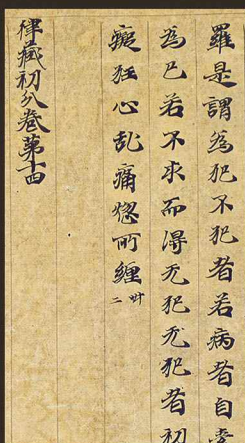 羅是謂為犯不犯者若病者自
為已若不求而得无犯无犯者初
癡狂心乱痛惱所纏
律藏初分卷第十四